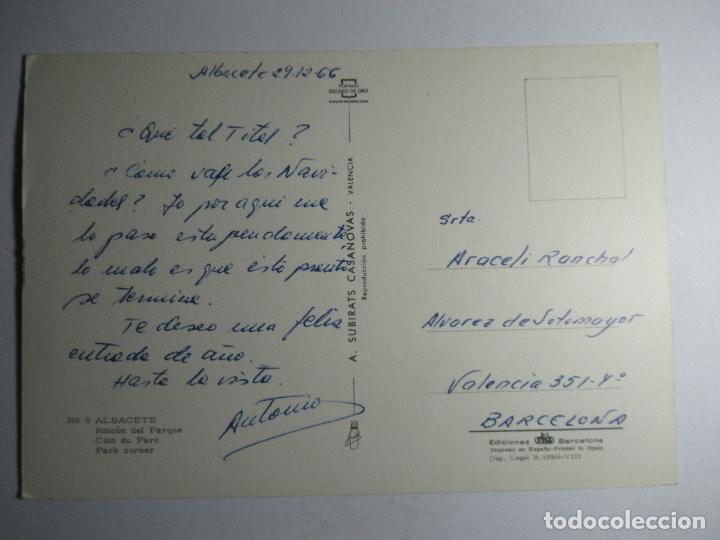 Albacete 29.12.66
POSTALES
ESCUDO DE ORO
¿Qué tal Tital?
¿Como van las Navi-
dades? Yo por aqui me
lo paso estupendamente,
lo malo es que esto pronto
se termina.
Te deseo una feliz
entrada de año.
Hasta la vista.
Antonio
No 9 ALBACETE
Rincón del Parque
Coin du Parc
Park corner
A. SUBIRATS CASANOVAS - VALENCIA
Reproducción prohibida
Srta.
Araceli Ranchal
Alvarez de Sotomayor
Valencia 351-4º
BARCELONA
Ediciones Barcelona
Impreso en España-Printed in Spain
Dep. Legal B. -VIII
todocoleccion
todocoleccion.net